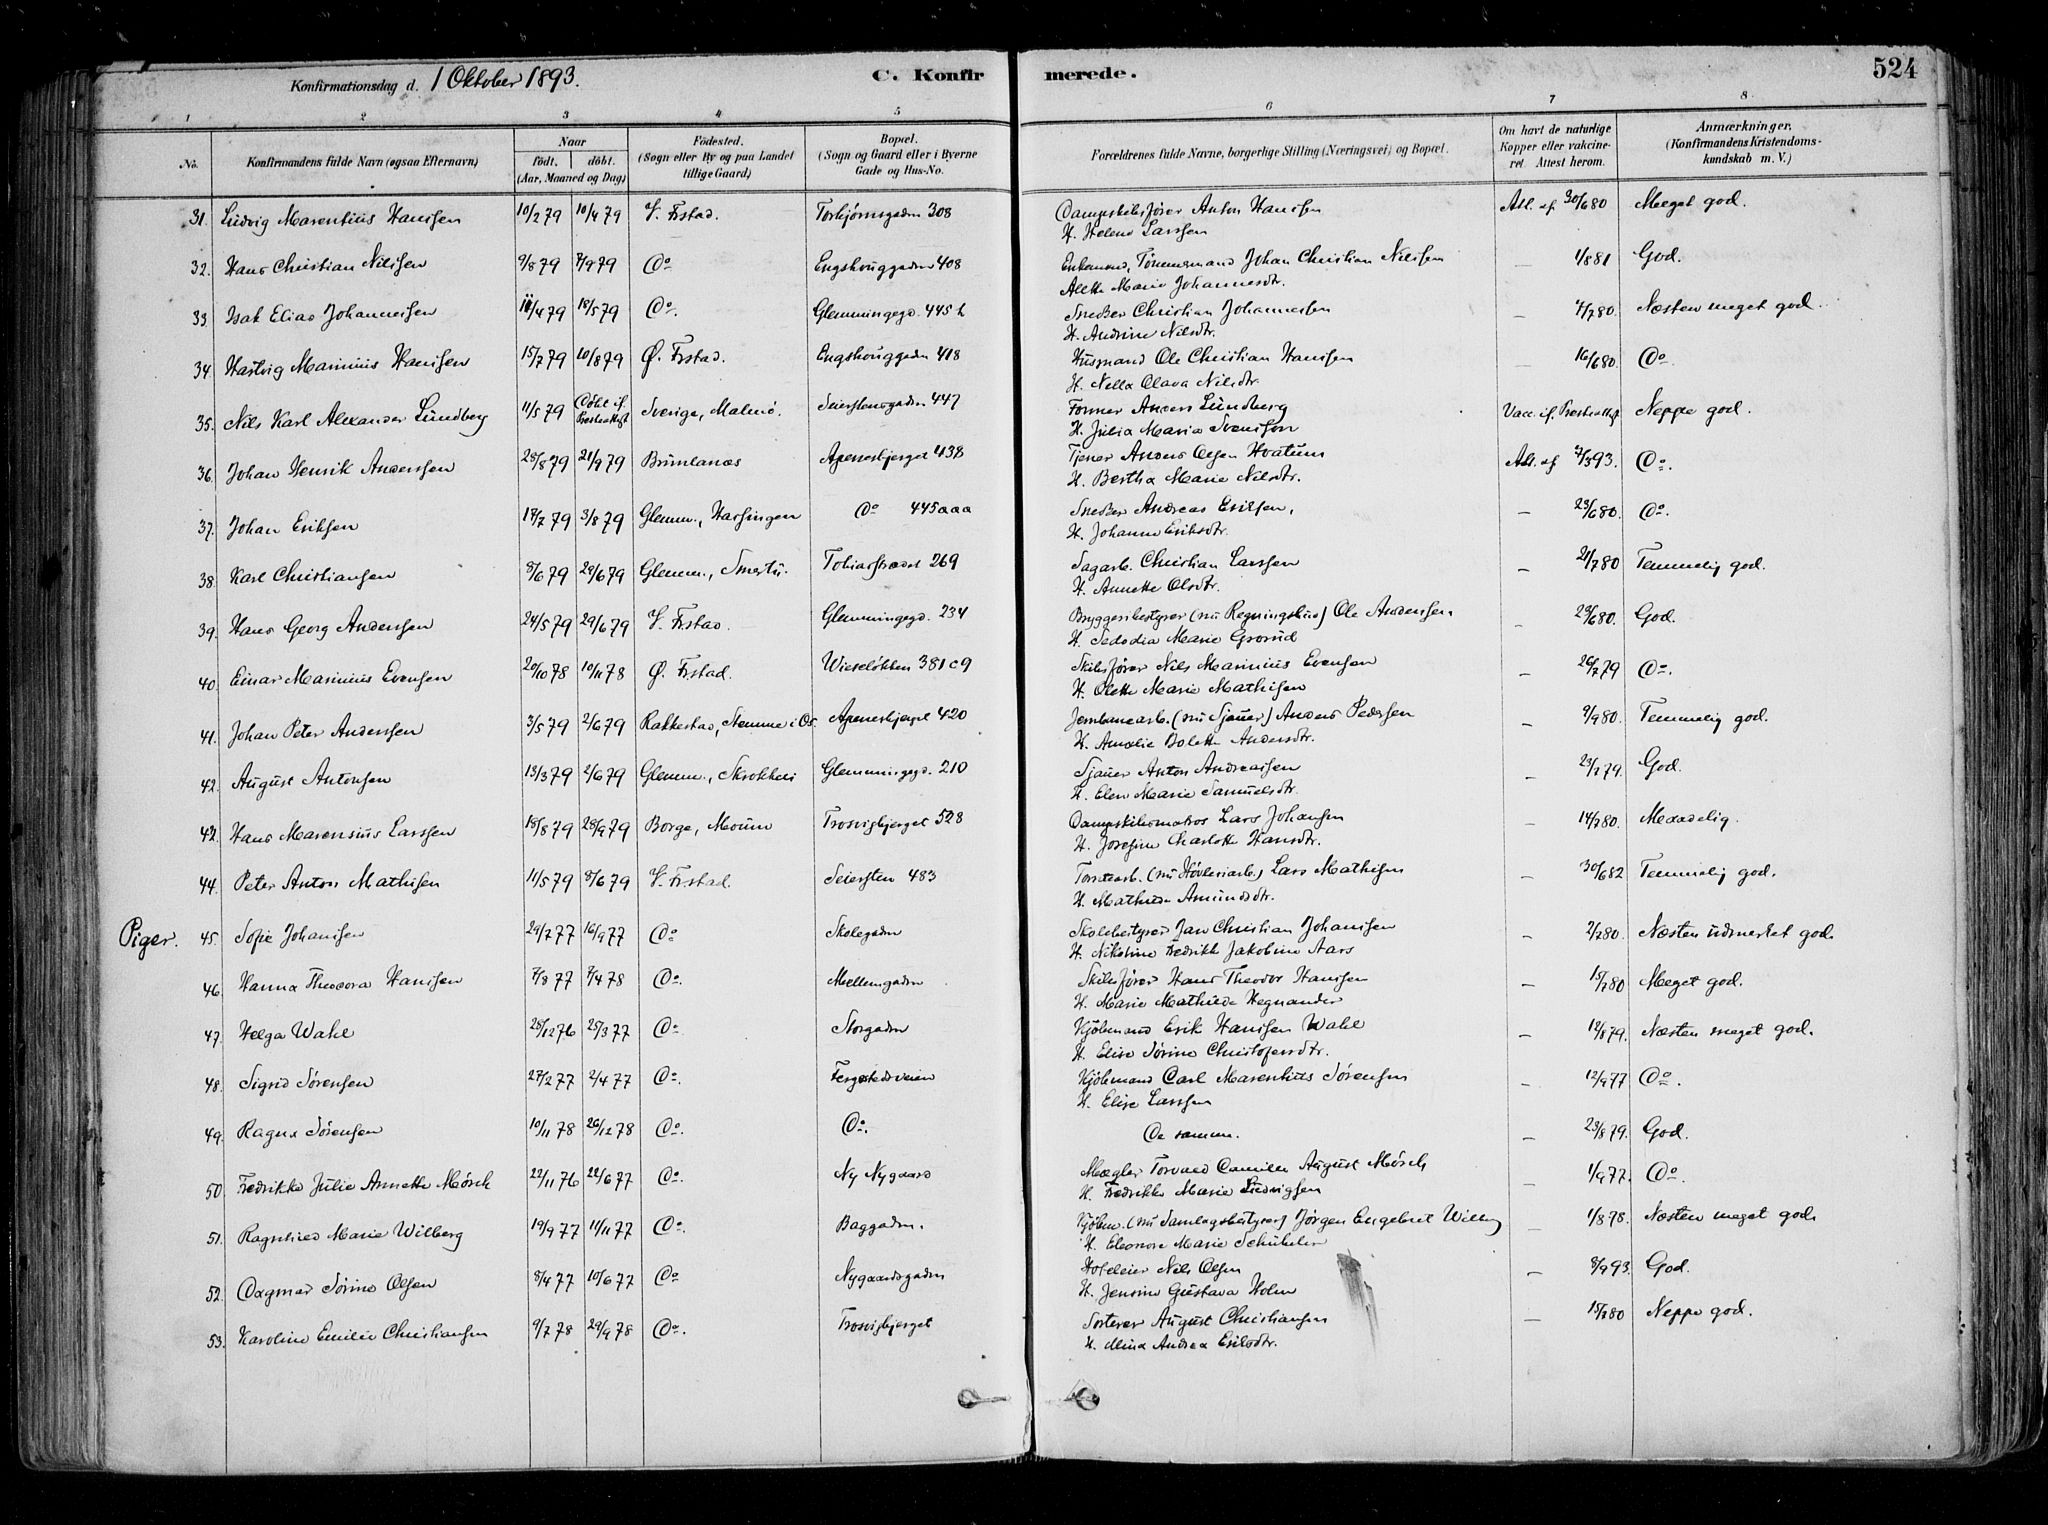 Konfirmationsdag d. 1 Oktober 1893.
C. Konfirmerede.
524
1 2 3 4 5 6 7 8
No.
Konfirmandens fulde Navn (ogsaa Efternavn)
Naar
født. døbt.
(Aar, Maaned og Dag)
Fødested.
(Sogn eller By og paa Landet
tillige Gaard)
Bopæl.
(Sogn og Gaard eller i Byerne
Gade og Hus-No.
Forældrenes fulde Navne, borgerlige Stilling (Næringsvei) og Bopæl.
Om havt de naturlige
Kopper eller vakcine-
ret. Attest herom.
Anmærkninger.
(Konfirmandens Kristendoms-
kundskab m. V.)
31. Ludvig Marentius Hanssen 10/2 79 10/4 79 V. Frstad. Torbjørnsgaden 308 Dampskibsfører Anton Hanssen Att. af 30/6 80 Meget god.
H. Helene Larssen
32. Hans Christian Nilssen 9/8 79 7/9 79 Do Engshouggaden 408 Enkemand, Tømmermand Johan Christian Nilssen — 1/8 81 God.
Alette Marie Johannesdtr.
33. Isak Elias Johannessen 11/4 79 18/5 79 Do. Glemmingegd. 445 b Snedker Christian Johannessen — 7/7 80. Næsten meget god.
H. Andrine Nilsdtr.
34. Hartvig Marinius Hanssen 15/7 79 10/8 79 Ø. Frstad. Engshouggaden 418 Husmand Ole Christian Hanssen — 16/6 80. Do
H. Nella Olava Nilsdtr.
35. Nils Karl Alexander Lundberg 11/5 79 Døbt if. Presteattest Sverige, Malmö. Seierstensgaden 447 Former Anders Lundberg Vacc. if. Presteattest Neppe god.
H. Julia Maria Svensson
36. Johan Henrik Anderssen 28/8 79 21/9 79 Brunlanæs Apenesbjerget 438 Tjener Anders Olsen Hvatum Att. af 2/3 93. Do.
H. Bertha Marie Nilsdtr.
37. Johan Eriksen 18/7 79 3/8 79 Glemm., Hassingen Do 445aaa Snedker Andreas Eriksen, — 23/6 80. Do.
H. Johanne Eriksdtr.
38. Karl Christiansen 8/6 79 29/6 79 Glemm., Smertu. Tobiasstrædet 269 Sagarb. Christian Larssen — 21/7 80 Temmelig god.
H. Annette Olsdtr.
39. Hans Georg Anderssen 24/5 79 29/6 79 V. Frstad. Glemmingegd. 234 Bryggeribestyrer (nu Regningsbud) Ole Anderssen. — 29/6 80. God.
H. Sedodia Marie Grorud
40. Einar Marinius Evensen 20/10 78 10/11 78 Ø. Frstad. Wieseløkken 381 c9 Skibsfører Nils Marinius Evensen — 26/7 79 Do.
H. Olette Marie Mathisen
41. Johan Peter Anderssen 3/5 79 2/6 79 Rakkestad, Stemme i Os. Apenesbjerget 420 Jernbanearb. (nu Sjauer) Anders Pedersen — 9/9 80. Temmelig god.
H. Amalie Bolette Andersdtr.
42. August Antonsen 13/3 79 2/6 79 Glemm., Skrokken Glemmingegd. 210 Sjauer Anton Andreassen — 23/7 79. God.
H. Elen Marie Samuelsdtr.
42. Hans Marensius Larssen 18/8 79 28/9 79 Borge, Moum Trosvigbjerget 528 Dampskibsmatros Lars Johansen — 14/7 80. Maadelig.
H. Josefine Charlotte Hansdtr.
44. Peter Anton Mathisen 11/5 79 8/6 79 V. Frstad. Seiersten 483 Tomtearb. (nu Høvleriarb.) Lars Mathisen — 30/6 82 Temmelig god.
H. Mathilde Amundsdtr.
Piger. 45. Sofie Johanssen 29/7 77 16/9 77 Do Skolegaden Skolebestyrer Jan Christian Johanssen — 2/7 80. Næsten udmerket god.
H. Nikoline Fredrikke Jakobine Aars
46. Hanna Theodora Hanssen 7/8 77 7/4 78 Do. Mellemgaden Skibsfører Hans Theodor Hanssen — 15/7 80 Meget god.
H. Marie Mathilde Hegnander
47. Helga Wahl 28/12 76 25/3 77 Do. Storgaden Kjøbmand Erik Hanssen Wahl — 12/8 79. Næsten meget god.
H. Elise Sørine Christofersdtr.
48. Sigrid Sørensen 27/2 77 2/4 77 Do. Fergestedsveien Kjøbmand Carl Marentius Sørensen — 12/9 77 Do.
H. Elise Larssen
49. Ragna Sørensen 10/11 78 26/12 78 Do. Do. De samme. — 23/8 79. God.
50 Fredrikke Julie Annette Mørch 22/11 76 22/6 77 Do. Ny Nygaard Mægler Torvald Camillo August Mørch — 1/9 77. Do.
H. Fredrikke Marie Ludvigsen
51. Ragnhild Marie Wilberg 19/9 77 11/11 77 Do. Baggaden. Kjøbm. (nu Samlagsbestyrer) Jørgen Engebret Wilberg — 1/8 78. Næsten meget god.
H. Eleonore Marie Schübeler
52. Dagmar Sørine Olsen 8/4 77 10/6 77 Do Nygaardsgaden Hoteleier Nils Olsen — 8/9 93. God.
H. Jensine Gustava Holm
53. Karoline Emilie Christiansen 9/7 78 29/9 78 Do. Trosvigbjerget Sorterer August Christiansen — 15/7 80 Neppe god.
H. Mina Andrea Eriksdtr.